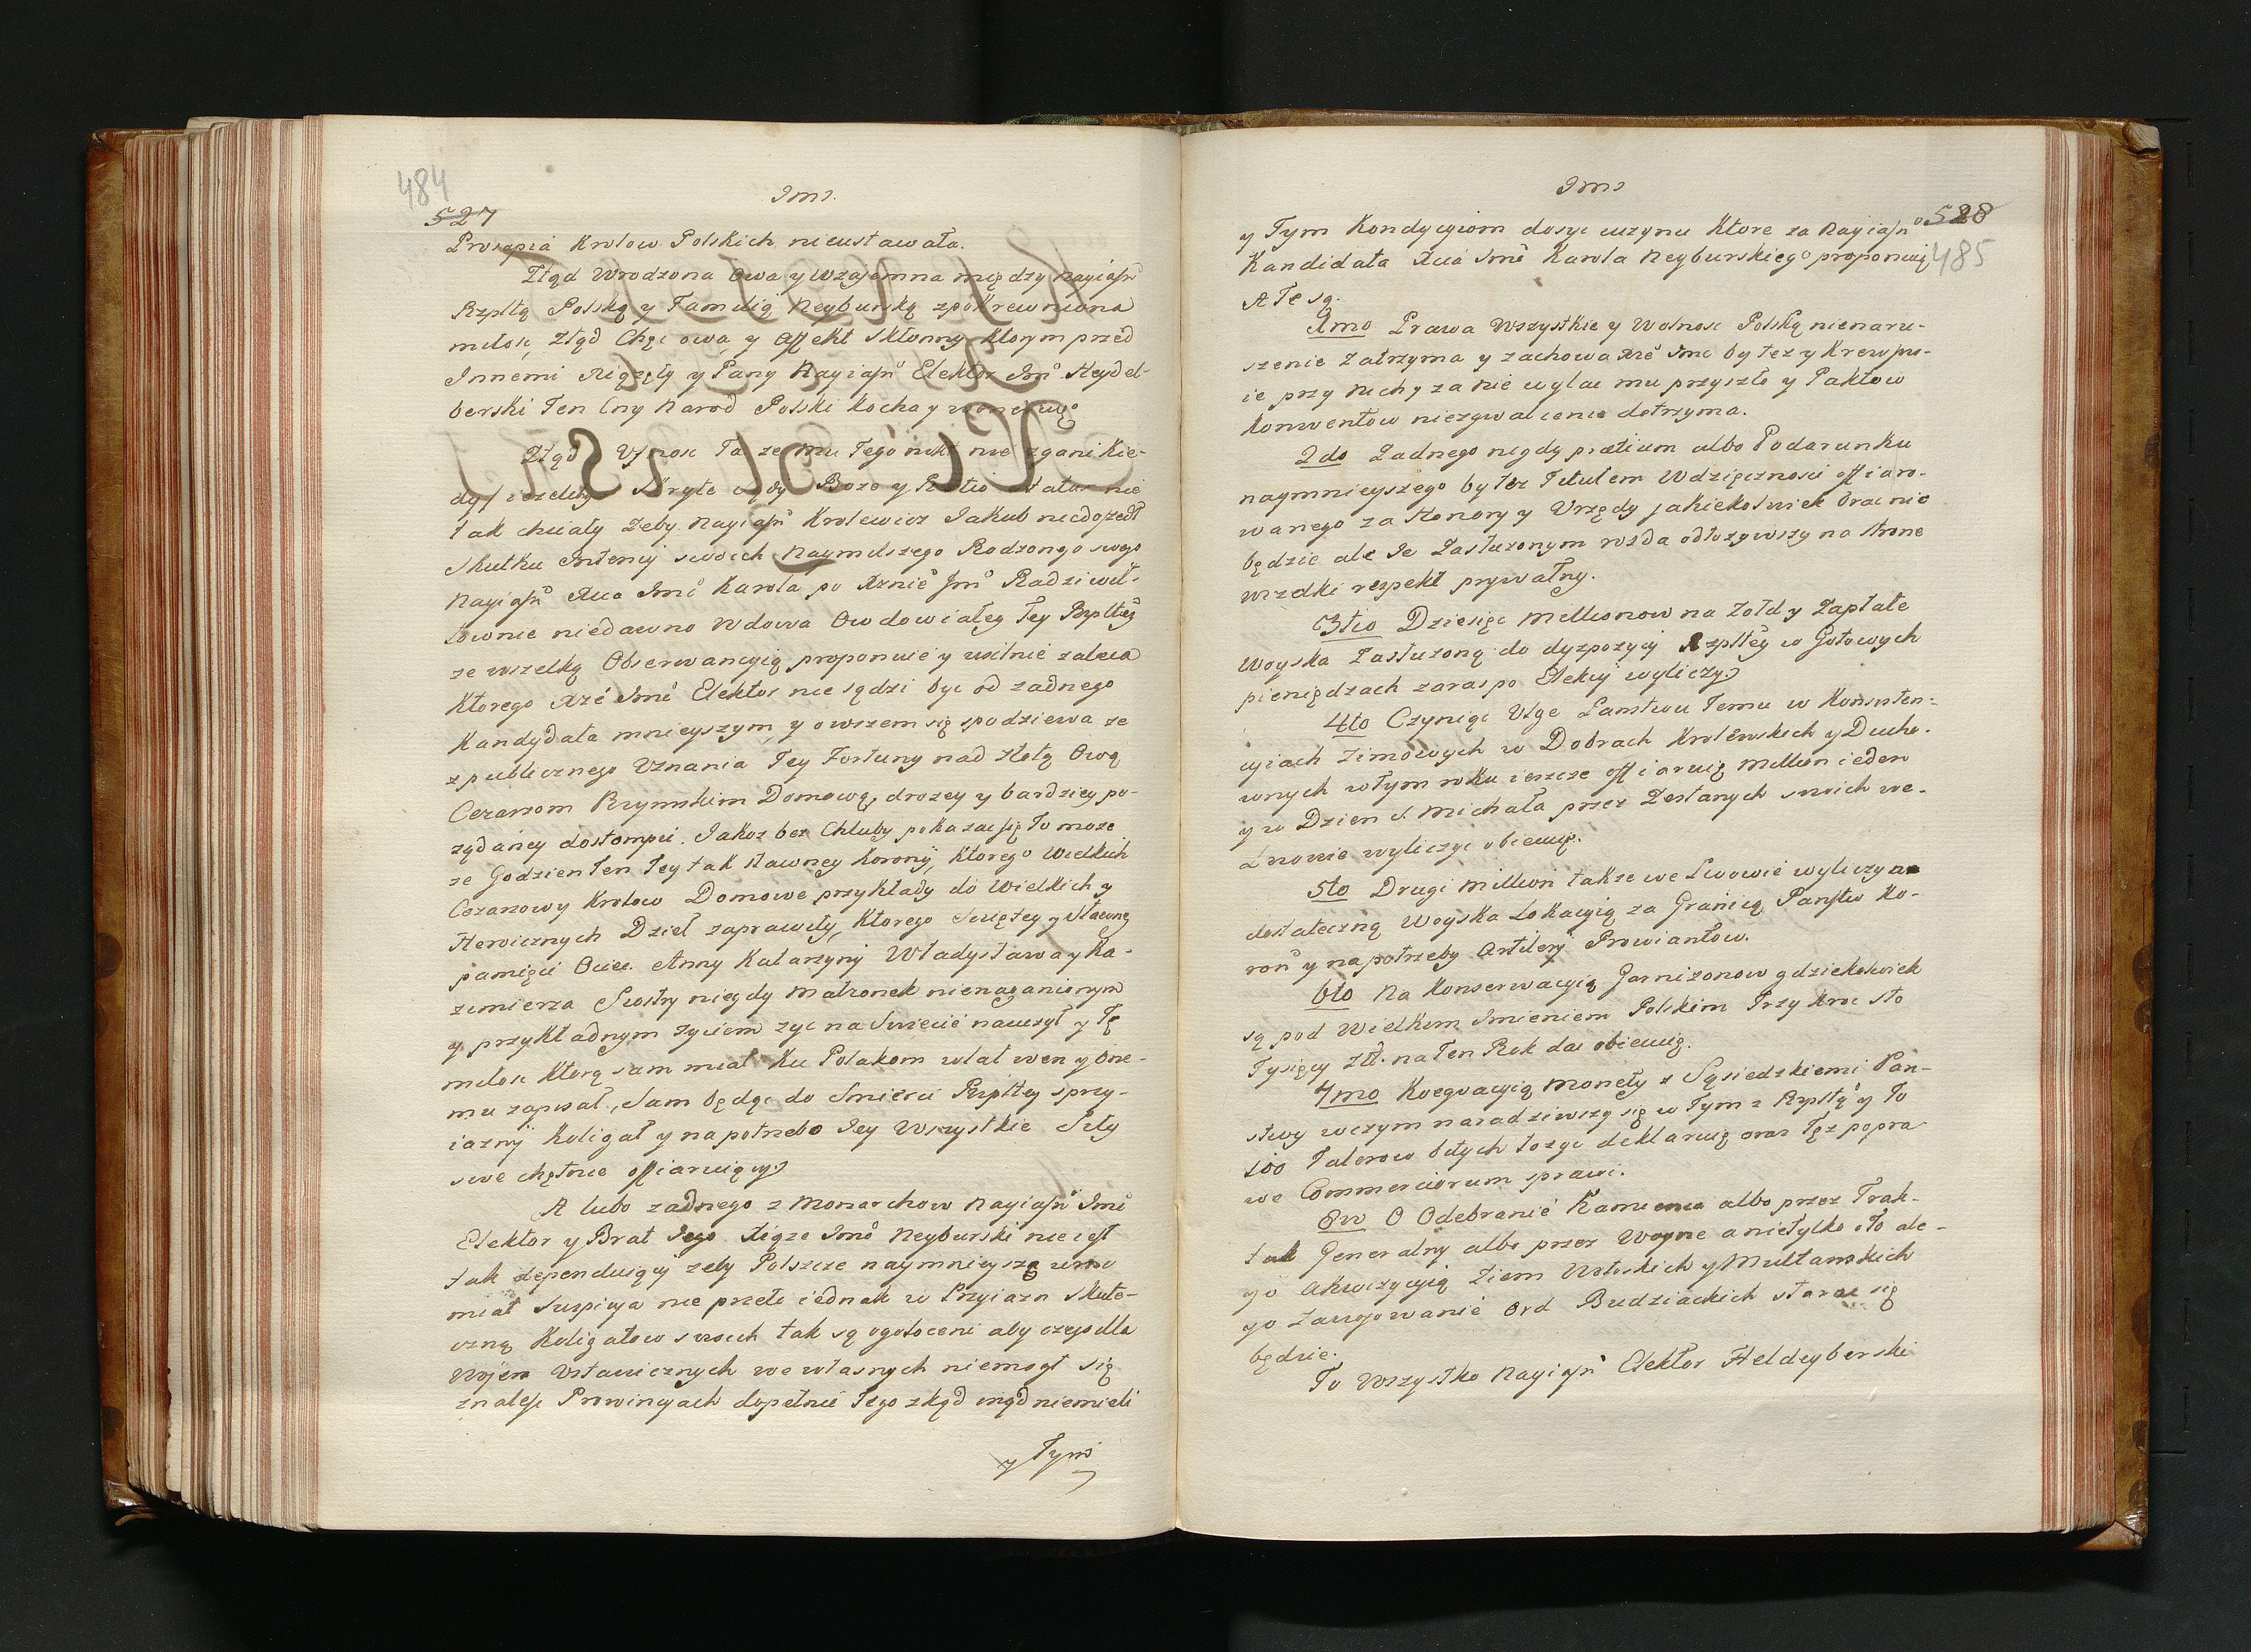 484
527
Jmo.
Prosapia Krolow Polskich nieustawała.
Ztąd Wrodzona Owa y Wzajemna między Nayiaśn
Rzpltą Polską y Familią Neyburską zpokrewniona
miłosc, Ztąd Chęc owa, y Affekt skłonny, ktorym przed
Innemi Xiązęty y Pany Nayiaśn Elektor Jmć Heydel-
berski Ten Cny Narod Polski kocha y
Ztąd Ufnosc Ta, ze mu Tego nikt nie zgani kie-
dy, iezeliby Skryte sądy Boze y Ratio Status nie
tak chciały Zeby Nayiaśn Krolewicz Jakub niedoszedł
skutku Intencyi swoich Naymilszego Rodzonego swego
Nayiaśn Xcia Jmć Karola po Xznie Jmć Radziwił-
łownie niedawno Wdowca Owdowiałey Tey Rzpltey
ze wszelką Obserwancyią proponuie y usilnie zaleca
Ktorego Xzę Jmć Elektor nie sądzi byc od zadnego
Kandydata mnieyszym, y owszem się spodziewa ze
z publicznego Uznania Tey Fortuny nad złotą Ową
Cezarzom Rzymskim Domową, drozey y bardziey po-
ządaney dostompi. Jakoz bez Chluby pokazac się To moze
ze Godzien Ten Tey tak sławney Korony, Ktorego Wielkich
Cezarzowy Krolow Domowe przykłady do Wielkich y
Heroicznych Dzieł zaprawiły, Ktorego Swiętey y Sławney
pamięci Ociec Anny Katarzyny Władysława y Ka-
zimierza Siostry niegdy Małzonek nienaganionym
y przykładnym zyciem zyc na Swiecie nauczył y Tę
miłosc Ktorą sam miał Ku Polakom wlał wen y one-
mu zapisał, Sam będąc do Smierci Rzpltey sprzy-
iazny Koligat y na potrzebo Jey Wszystkie Siły
swe chętnie offiaruiący
A lubo zadnego z Monarchow Nayiaśn Jmć
Elektor y Brat Jego Xiąze Jmć Neyburski nie iest
tak dependuiący zeby Polszcze naymnieyszą
miał Suspicya nie przeto iednak w Przyiazn skute-
czną Koligatow swoich tak są ogołoceni aby czego dla
Wojen Ustawicznych we własnych niemogł się
znaleść Prowincyach dopełnic Tego zkąd inąd niemieli
y Tym
Jmo
528
485
y Tym Kondycyiom dosyc uczynic Ktore za Nayiaśn
Kandidata Xcia Jmć Karola Neyburskiego proponuią
A Te są.
1mo Prawa Wszystkie y Wolnosc Polską nienaru-
szenie Zatrzyma y zachowa Xzę Jmć by tez y Krew swo-
ie przy nich y za nie wylac mu przyszło y Paktow
Konwentow niezgwałcenie dotrzyma.
2do Zadnego nigdy prætium albo Podarunku
naymnieyszego by tez Titulem Wdzięcznosci offiaro-
wanego za Honory y Urzędy jakiekolwiek brac nie
będzie ale Je Zasłuzonym rozda odłozywszy na strone
wszelki respekt prywatny.
3tio Dziesięc Millionow na Zołd y Zapłate
Woyska Zasłuzoną do dyspozycyi Rzpltey w Gotowych
pieniędzach zaraz po Elekcyi wyliczy
4to Czyniąc Ulge Panstwu Temu w Konsisten-
cyiach Zimowych w Dobrach Krolewskich y Ducho-
wnych w tym roku ieszcze offiaruią Million ieden
y w Dzien S. Michała przez Zesłanych swoich we
Lwowie wyliczyc obiecuią.
5to Drugi Million takze we Lwowie wyliczy na
dostateczną Woyska Lokacyią za Granicą Państw Ko-
ron y na potrzeby Artileryi Prowiantow.
6to Na Konserwacyią Garnizonow gdziekolwiek
są pod Wielkim Imieniem Polskim Trzy Kroc sto
Tysięcy Złł. na Ten Rok dac obiecuią.
7mo Koequacyią Monety z Sąsiedzkiemi Pan-
stwy wczym naradziwszy się w Tym z Rzpltą y To
100 Talerow bitych łozyc deklaruią oraz Też popra-
we Commerciorum sprawi.
8vo O Odebranie Kamienca albo przez Trak-
tak Generalny albo przez Woyne a nie tylko o to ale
y o Akwizycyią Ziem Wołoskich y Multanskich
y o Zawojowanie Ord Budziackich starac się
będzie.
To Wszystko Nayiaśn Elektor Heldeyberski